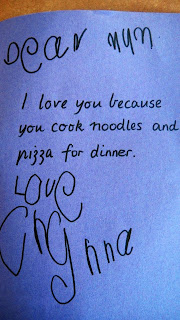 Dear mum
I love you because
you cook noodles and
pizza for dinner.
Love